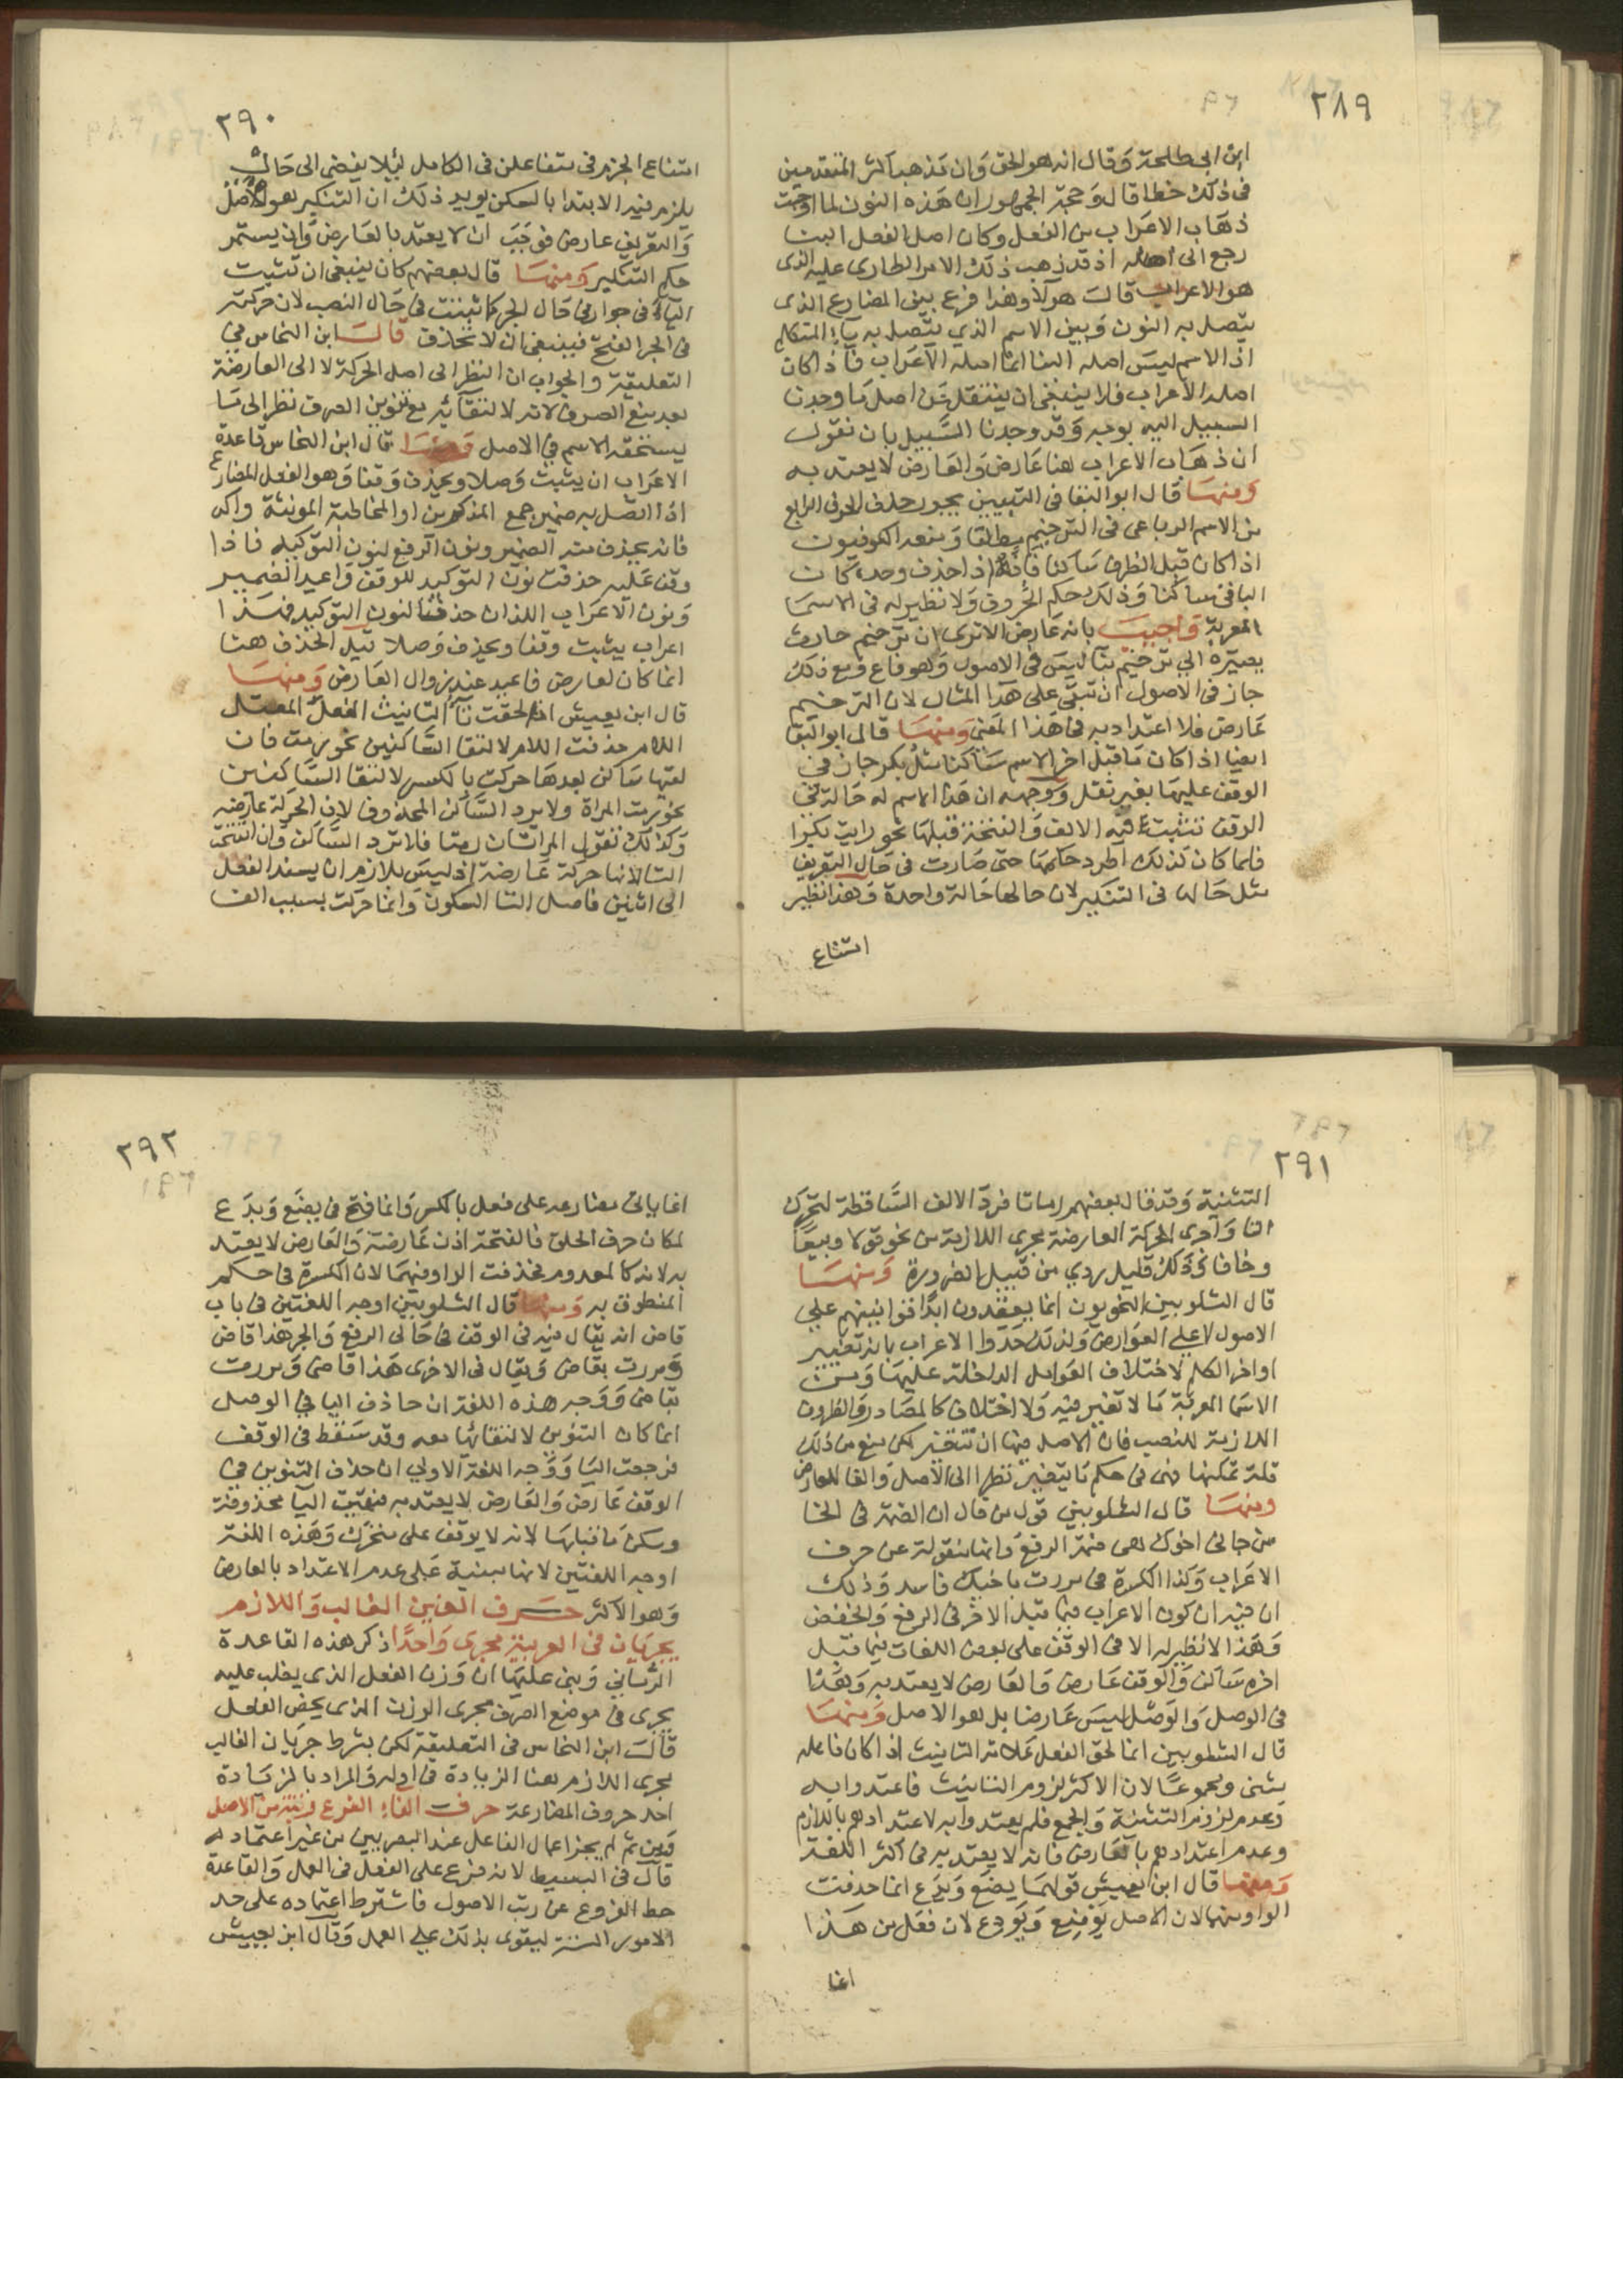 ٢٨٩
ابن ابى طلحة وقال انه هو الحق وان ذهب اكثر المتقدمين
فى ذلك خطا قال وحجة الجمهور ان هذه النون لما اوجبت
ذهاب الاعراب من الفعل وكان اصل الفعل البنا
رجع الى اصله اذ قد ذهب ذلك الامر الطارى عليه الذى
هو الاعراب قالت هولا وهذا فرع بين المضارع الذى
يتصل به النون وبين الاسم الذي يتصل به ياء المتكلم
اذ الاسم ليس اصله البنا انما اصله الاعراب فاذا كان
اصله الاعراب فلا ينبغى ان ينتقل عن اصل ما وجدنا
السبيل اليه بوجه وقد وجدنا السبيل بان نقول
ان ذهاب الاعراب هنا عارض والعارض لا يعتد به
ومنها قال ابو البقا فى التبيين يجوز حذف الحرف الرابع
من الاسم الرباعى فى الترخيم مطلقا ومنعه الكوفيون
اذا كان قبل الطرف ساكن فانه اذا حذف وحده كان
الباقى ساكنا وذلك حكم الحروف ولا نظير له فى الاسما
المعربة واجيب بانه عارض الا ترى ان ترخيم حارث
يصيره الى ترخيم بنا ليس فى الاصول وهو فاع ومع ذلك
جاز فى الاصول ان تبقى على هذا المثال لان الترخيم
عارض فلا اعتداد به فى هذا المعنى ومنها قال ابو البقا
ايضا اذا كان ما قبل اخر الاسم ساكنا مثل بكر جاز فى
الوقف عليها بغير نقل ووجهه ان هذا الاسم له حالة فى
الوقف تثبت فيه الالف والفتحة قبلها نحو رايت بكرا
فلما كان كذلك اطرد حكمها حتى صارت فى حال التعريف
مثل حالها فى التنكير لان حالها حالة واحدة وهذا نظير
امتناع
٢٩٠
امتناع الجزم فى متفاعلن فى الكامل لئلا يفضى الى حال
يلزم فيه الابتدا بالسكن يويد ذلك ان التنكير هو الاصل
والتعريف عارض فوجب ان لا يعتد بالعارض وان يستمر
حكم التنكير ومنها قال بعضهم كان ينبغى ان تثبت
الياء فى جوار فى حال الجر كما ثبتت فى حال النصب لان حركته
فى الجر الفتح فينبغى ان لا تحذف قالت ابن النحاس فى
التعليقة والجواب ان النظر الى اصل الحركة لا الى العارضة
بعد منع الصرف لانه لالتقائه مع تنوين الصرف نظرا الى ما
يستحقه الاسم فى الاصل ومنها قال ابن النحاس قاعدة
الاعراب ان يثبت وصلا ويحذف وقفا وهو الفعل المضارع
اذا اتصل به ضمير جمع المذكورين او المخاطبة المونثة واكد
فانه يحذف منه الضمير ونون الرفع لنون التوكيد فاذا
وقف عليه حذفت نون التوكيد للوقف واعيد الضمير
ونون الاعراب اللذان حذفتا لنون التوكيد فهذا
اعراب يثبت وقفا ويحذف وصلا قيل الحذف هنا
انما كان لعارض فاعيد عند زوال العارض ومنها
قال ابن يعيش اذا لحقت تا التانيث الفعل المعتل
اللام حذفت اللام لالتقا الساكنين نحو رمت فان
لقيها ساكن بعدها حركت بالكسر لالتقا الساكنين
نحو رمت المراة ولا يرد الساكن المحذوف لان الحركة عارضة
وكذلك تقول المراتان رمتا فلا ترد الساكن وان انفتحت
التا لانها حركة عارضة اذ ليس بلازم ان يسند الفعل
الى اثنين فاصل التا السكون وانما حركت بسبب الف
٢٩١
التثنية وقد قال بعضهم رماتا فرد الالف الساقطة لتحرك
التا واجرى الحركة العارضة مجرى اللازمة من نحو قولا وبيعا
وخافا وذلك قليل ردي من قبيل الضرورة ومنها
قال الشلوبين النحويون انما يعقدون ابدا قوانينهم على
الاصول لا على العوارض ولذلك حدوا الاعراب بانه تغيير
اواخر الكلم لاختلاف العوامل الداخلة عليها ومن
الاسما المعربة ما لا تغير فيه ولا اختلاف كالمصادر والظروف
اللازمة للنصب فان الاصل فيها ان تتغير لكن منع من ذلك
قلة تمكنها فهى فى حكم ما يتغير نظرا الى الاصل والغا للعارض
ومنها قال الشلوبين قول من قال ان الضمة فى الخا
من جانى اخوك هى ضمة الرفع وانها منقولة عن حرف
الاعراب وكذا الكسرة فى مررت باخيك فاسد وذلك
ان فيه ان كون الاعراب فيما قبل الاخر فى الرفع والخفض
وهذا لا نظير له الا فى الوقف على بعض اللغات فيما قبل
اخره ساكن والوقف عارض والعارض لا يعتد به وهذا
فى الوصل والوصل ليس عارضا بل هو الاصل ومنها
قال الشلوبين انما لحق الفعل علامة التانيث اذا كان فاعله
مثنى ومجموعا لان الاكثر لزوم التانيث فاعتدوا به
وعدم لزوم التثنية والجمع فلم يعتدوا به لاعتدادهم باللازم
وعدم اعتدادهم بالعارض فانه لا يعتد به فى اكثر اللغة
ومنها قال ابن يعيش قولهما يضع ويدع انما حذفت
الواو منهما لان الاصل يوضع ويودع لان فعل من هذا
انما
٢٩٢
انما ياتى مضارعه على فعل بالكسر وانما فتح فى يضع ويدع
لمكان حرف الحلق فالفتحة اذن عارضة والعارض لا يعتد
به لانه كالمعدوم فحذفت الواو فيهما لان الكسرة فى حكم
المنطوق به ومنها قال الشلوبين اوجه اللغتين فى باب
قاض انه يقال فيه فى الوقف فى حالى الرفع والجر هذا قاض
ومررت بقاض ويقال فى الاخرى هذا قاضى ومررت
بقاضى ووجه هذه اللغة ان حاذف اليا فى الوصل
انما كان التنوين لالتقائها معه وقد سقط فى الوقف
فرجعت اليا ووجه اللغة الاولى ان حذف التنوين فى
الوقف عارض والعارض لا يعتد به فبقيت اليا محذوفة
وسكن ما قبلها لانه لا يوقف على متحرك وهذه اللغة
اوجه اللغتين لانها مبنية على عدم الاعتداد بالعارض
وهو الاكثر حرف الغين الغالب واللازم
يجريان فى العربية مجرى واحدا ذكر هذه القاعدة
الرمانى وبنى عليها ان وزن الفعل الذى يغلب عليه
يجرى فى موضع الصرف مجرى الوزن الذى يخص الفعل
قالت ابن النحاس فى التعليقة لكن بشرط جريان الغالب
مجرى اللازم هنا الزيادة فى اوله والمراد بالزيادة
احد حروف المضارعة حرف الفاء الفرع رتبة من الاصل
ومن ثم لم يجز اعمال الفاعل عند البصريين من غير اعتماد له
قال فى البسيط لانه فرع على الفعل فى العمل والقاعدة
حط الفروع عن رتب الاصول فاشترط اعتماده على حد
الامور الستة ليقوى بذلك على العمل وقال ابن يعيش